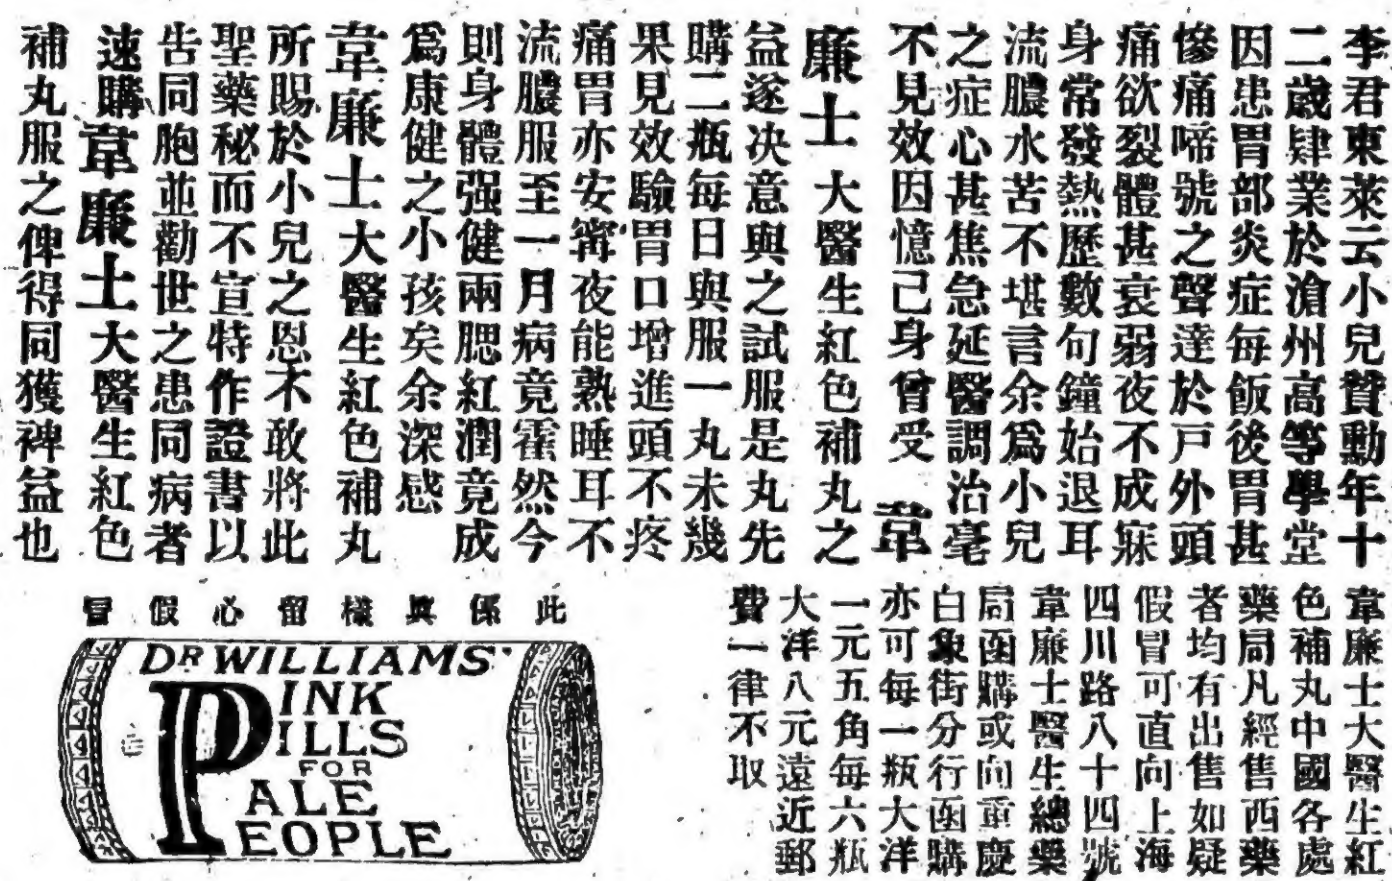 李君東萊云小兒贊勳年十
二歲肄業於滄州高等學堂
因患胃部炎症每飯後胃甚
慘痛啼號之聲達於戶外頭
痛欲裂體甚衰弱夜不成寐
身常發熱歷數句鐘始退耳
流膿水苦不堪言余爲小兒
之症心甚焦急延醫調治毫
不見效因憶己身曾受 韋
廉士大醫生紅色補丸之
益遂决意與之試服是丸先
購二瓶每日與服一丸未幾
果見效驗胃口增進頭不疼
痛胃亦安甯夜能熟睡耳不
流膿服至一月病竟霍然今
則身體强健兩腮紅潤竟成
爲康健之小孩矣余深感
韋廉士大醫生紅色補丸
所賜於小兒之恩不敢將此
聖藥秘而不宣特作證書以
告同胞並勸世之患同病者
速購韋廉士大醫生紅色
補丸服之俾得同獲裨益也
韋廉士大醫生紅
色補丸中國各處
藥局凡經售西藥
者均有出售如疑
假冒可直向上海
四川路八十四號
韋廉士醫生總藥
局函購或向重慶
白象街分行函購
亦可每一瓶大洋
一元五角每六瓶
大洋八元遠近郵
費一律不取
此係眞樣留心假冒
DR WILLIAMS'
PINK
PILLS
FOR
PALE
PEOPLE